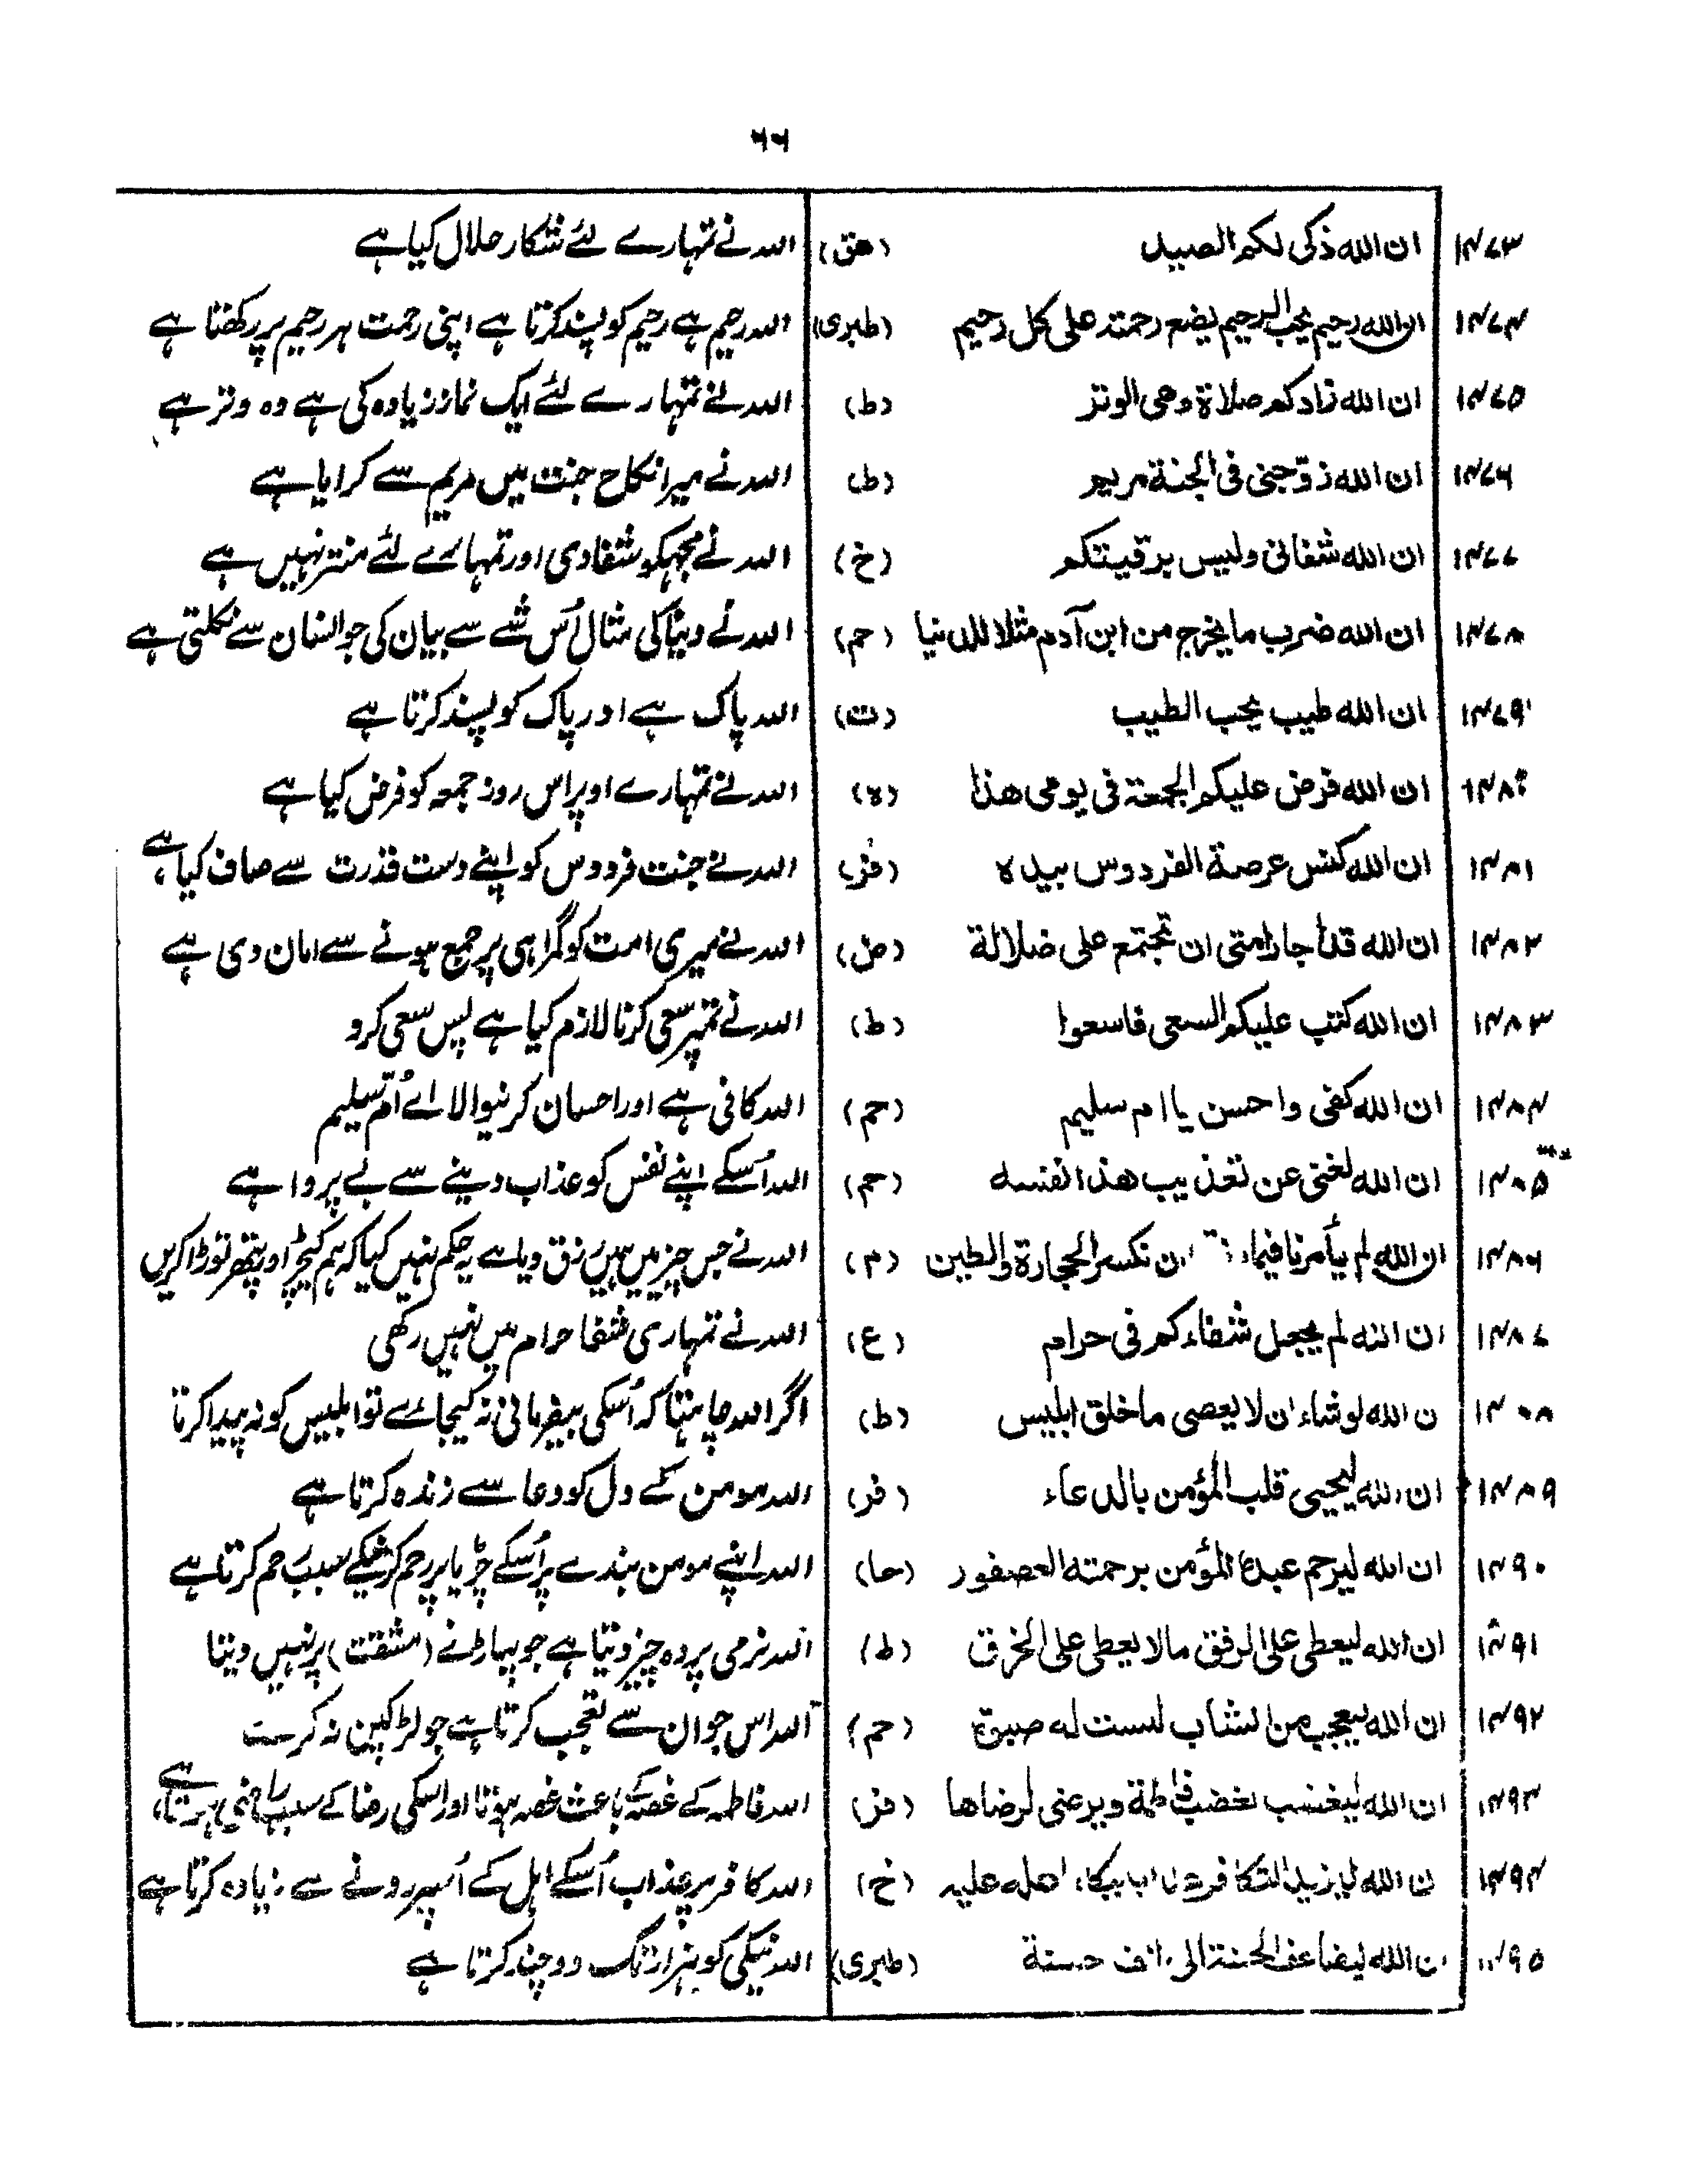 ۶۶
۱۴۷۳ ان الله ذکی لکم الصید (هق) اللہ نے تمہارے لئے شکار حلال کیا ہے
۱۴۷۴ ان الله رحیم یحب الرحیم یضع رحمته علی کل رحیم (طبری) اللہ رحیم ہے رحیم کو پسند کرتا ہے اپنی رحمت ہر رحیم پر رکھتا ہے
۱۴۷۵ ان الله زادکم صلاة وهی الوتر (ط) اللہ نے تمہارے لئے ایک نماز زیادہ کی ہے وہ وتر ہے
۱۴۷۶ ان الله زوّجنی فی الجنة مریم (ط) اللہ نے میرا نکاح جنت میں مریم سے کرایا ہے
۱۴۷۷ ان الله شفانی ولیس برقیتکم (خ) اللہ نے مجہکو شفا دی اور تمہارے لئے منتر نہیں ہے
۱۴۷۸ ان الله ضرب ما یخرج من ابن آدم مثلا للدنیا (حم) اللہ نے دنیا کی مثال اُس شے سے بیان کی جو انسان سے نکلتی ہے
۱۴۷۹ ان الله طیب یحب الطیب (ت) اللہ پاک ہے اور پاک کو پسند کرتا ہے
۱۴۸۰ ان الله فرض علیکم الجمعة فی یومی هذا (ہ) اللہ نے تمہارے اوپر اس روز جمعہ کو فرض کیا ہے
۱۴۸۱ ان الله کنس عرصة الفردوس بیدہ (فر) اللہ نے جنت فردوس کو اپنے دست قدرت سے صاف کیا ہے
۱۴۸۲ ان الله قد أجار امتی ان تجتمع علی ضلالة (ض) اللہ نے میری امت کو گمراہی پر جمع ہونے سے امان دی ہے
۱۴۸۳ ان الله کتب علیکم السعی فاسعوا (ط) اللہ نے تمپر سعی کرنا لازم کیا ہے پس سعی کرو
۱۴۸۴ ان الله کفی واحسن یا ام سلیم (حم) اللہ کافی ہے اور احسان کرنیوالا اے اُمّ سلیم
۱۴۸۵ ان الله لغنی عن تعذیب هذا نفسه (حم) اللہ اُسکے اپنے نفس کو عذاب دینے سے بے پروا ہے
۱۴۸۶ ان الله لم یأمرنا فیما ان نکسر الحجارة والطین (م) اللہ نے جس چیز میں ہمیں رزق دیا ہے یہ حکم نہیں کیا کہ ہم کیچڑ اور پتھر توڑا کریں
۱۴۸۷ ان الله لم یجعل شفاءکم فی حرام (ع) اللہ نے تمہاری شفا حرام میں نہیں رکھی
۱۴۸۸ ن الله لو شاء ان لا یعصی ما خلق ابلیس (ط) اگر اللہ چاہتا کہ اُسکی بیفرمانی نہ کیجائے تو ابلیس کو نہ پیدا کرتا
۱۴۸۹ ان الله لیحیی قلب المؤمن بالدعاء (فر) اللہ مومن کے دل کو دعا سے زندہ کرتا ہے
۱۴۹۰ ان الله لیرحم عبدہ المؤمن برحمته العصفور (حا) اللہ اپنے مومن بندے پر اُسکے چڑیا پر رحم کرنیکے سبب رحم کرتا ہے
۱۴۹۱ ان الله لیعطی علی الرفق مالا یعطی علی الخرق (ط) اللہ نرمی پر وہ چیز دیتا ہے جو پہاڑنے (مشقت) پر نہیں دیتا
۱۴۹۲ ان الله لیعجب من الشاب لیست له صبوة (حم) اللہ اس جوان سے تعجب کرتا ہے جو لڑکپن نہ کرے
۱۴۹۳ ان الله لیغضب لغضب فاطمة ویرضی لرضاها (فر) اللہ فاطمہ کے غصہ کے باعث غصہ ہوتا اور اسکی رضا کے سبب راضی ہوتا ہے
۱۴۹۴ ن الله لیزید الکافر عذابا ببکاء اهله علیه (خ) اللہ کافر پر عذاب اُسکے اہل کے اُسپر رونے سے زیادہ کرتا ہے
۱۴۹۵ ن الله لیضاعف الحسنة الی الف حسنة (طبری) اللہ نیکی کو ہزار تک دوچند کرتا ہے